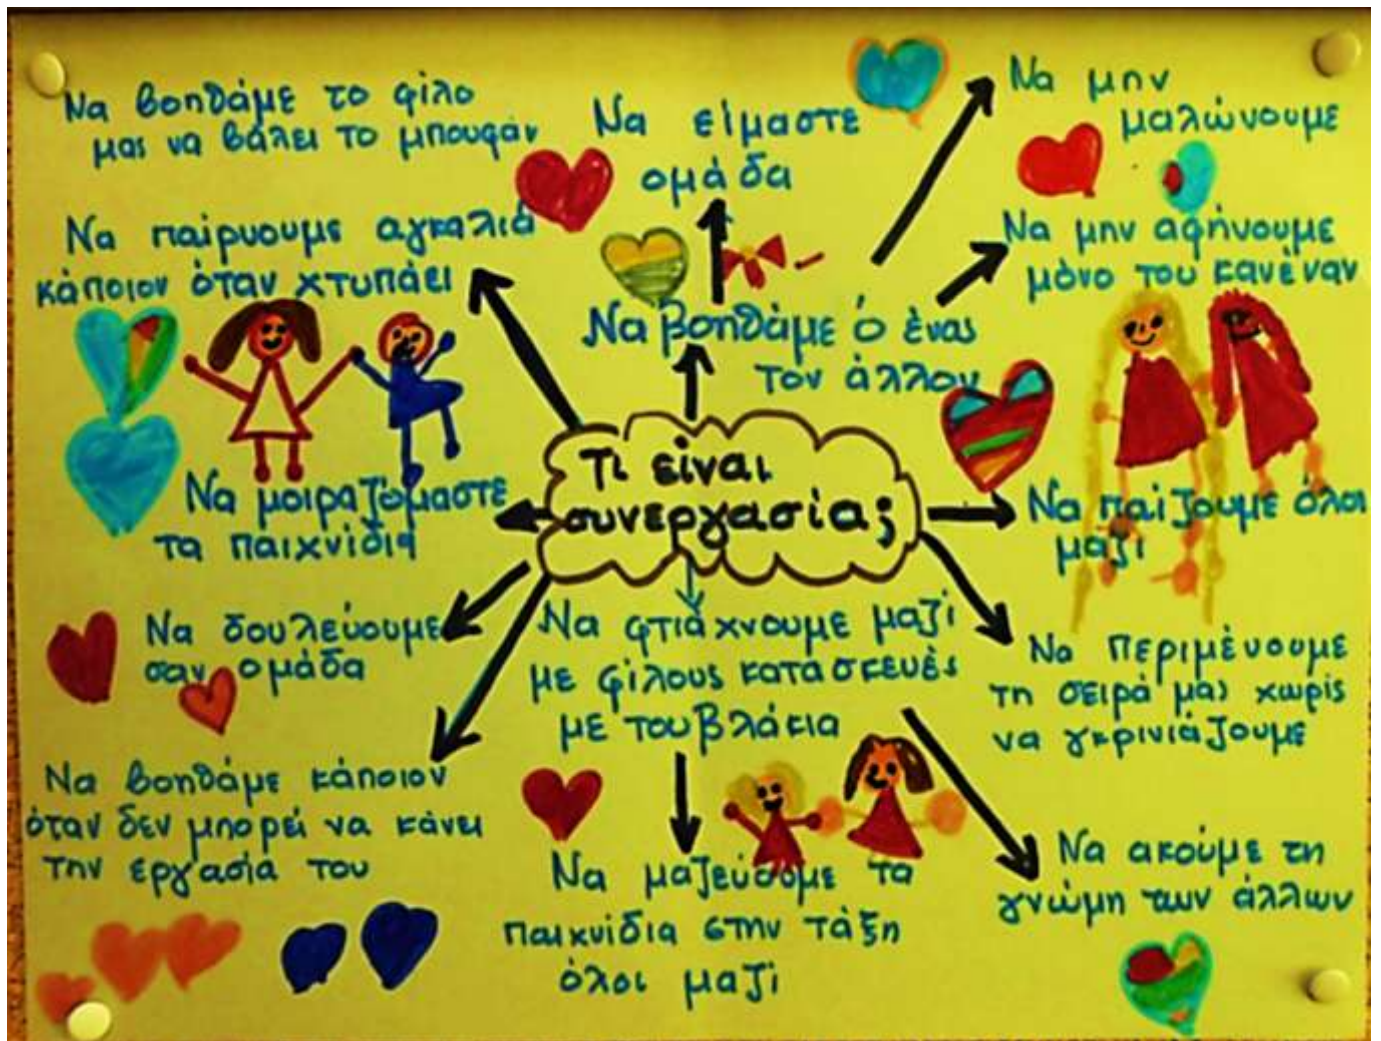 Να βοηθάμε το φίλο
μας να βάλει το μπουφάν
Να είμαστε
ομάδα
Να μην
μαλώνουμε
Να παίρνουμε αγκαλιά
κάποιον όταν χτυπάει
Να βοηθάμε ό ένας
τον άλλον
Να μην αφήνουμε
μόνο του κανέναν
Τι είναι
συνεργασία;
Να μοιραζόμαστε
τα παιχνίδια
Να παίζουμε όλοι
μαζί
Να δουλεύουμε
σαν ομάδα
Να φτιάχνουμε μαζί
με φίλους κατασκευές
με τουβλάκια
Να περιμένουμε
τη σειρά μας χωρίς
να γκρινιάζουμε
Να βοηθάμε κάποιον
όταν δεν μπορεί να κάνει
την εργασία του
Να μαζεύουμε τα
παιχνίδια στην τάξη
όλοι μαζί
Να ακούμε τη
γνώμη των άλλων